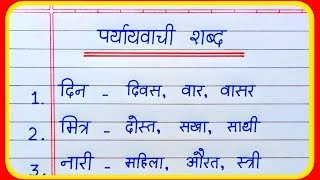 पर्यायवाची शब्द
1. दिन - दिवस, वार, वासर
2. मित्र - दोस्त, सखा, साथी
3. नारी - महिला, औरत, स्त्री